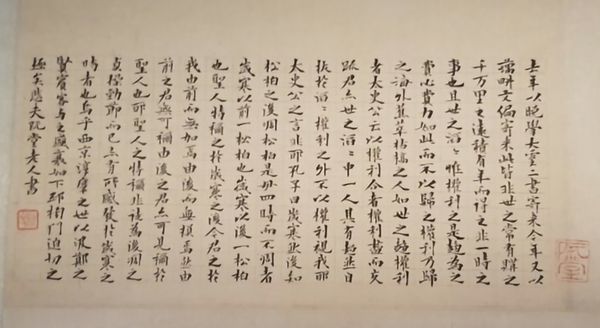 去年以晩學大雲二書寄來今年又以
藕畊文編寄來此皆非世之常有購之
千万里之遠積有年而得之非一時之
事也且世之滔〻惟權利之是趨爲之
費心費力如此而不以歸之權利乃歸
之海外蕉萃枯槁之人如世之趨權利
者太史公云以權利合者權利盡而交
疎君亦世之滔〻中一人其有超然自
拔於滔〻權利之外不以權利視我耶
太史公之言非耶孔子曰歲寒然後知
松栢之後凋松栢是毌四時而不凋者
歲寒以前一松栢也歲寒以後一松栢
也聖人特稱之於歲寒之後今君之於
我由前而無加焉由後而無損焉然由
前之君無可稱由後之君亦可見稱於
聖人也耶聖人之特稱非徒爲後凋之
貞操勁節而已亦有所感發於歲寒之
時者也烏乎西京淳厚之世以汲鄭之
賢賓客與之盛衰如下邳榜門迫切之
極矣悲夫阮堂老人書
阮堂